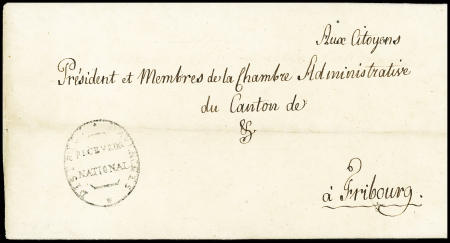 Aux Citoyens
Président et Membres de la Chambre Administrative
du Canton de
à Fribourg.
RECEVEUR
NATIONAL